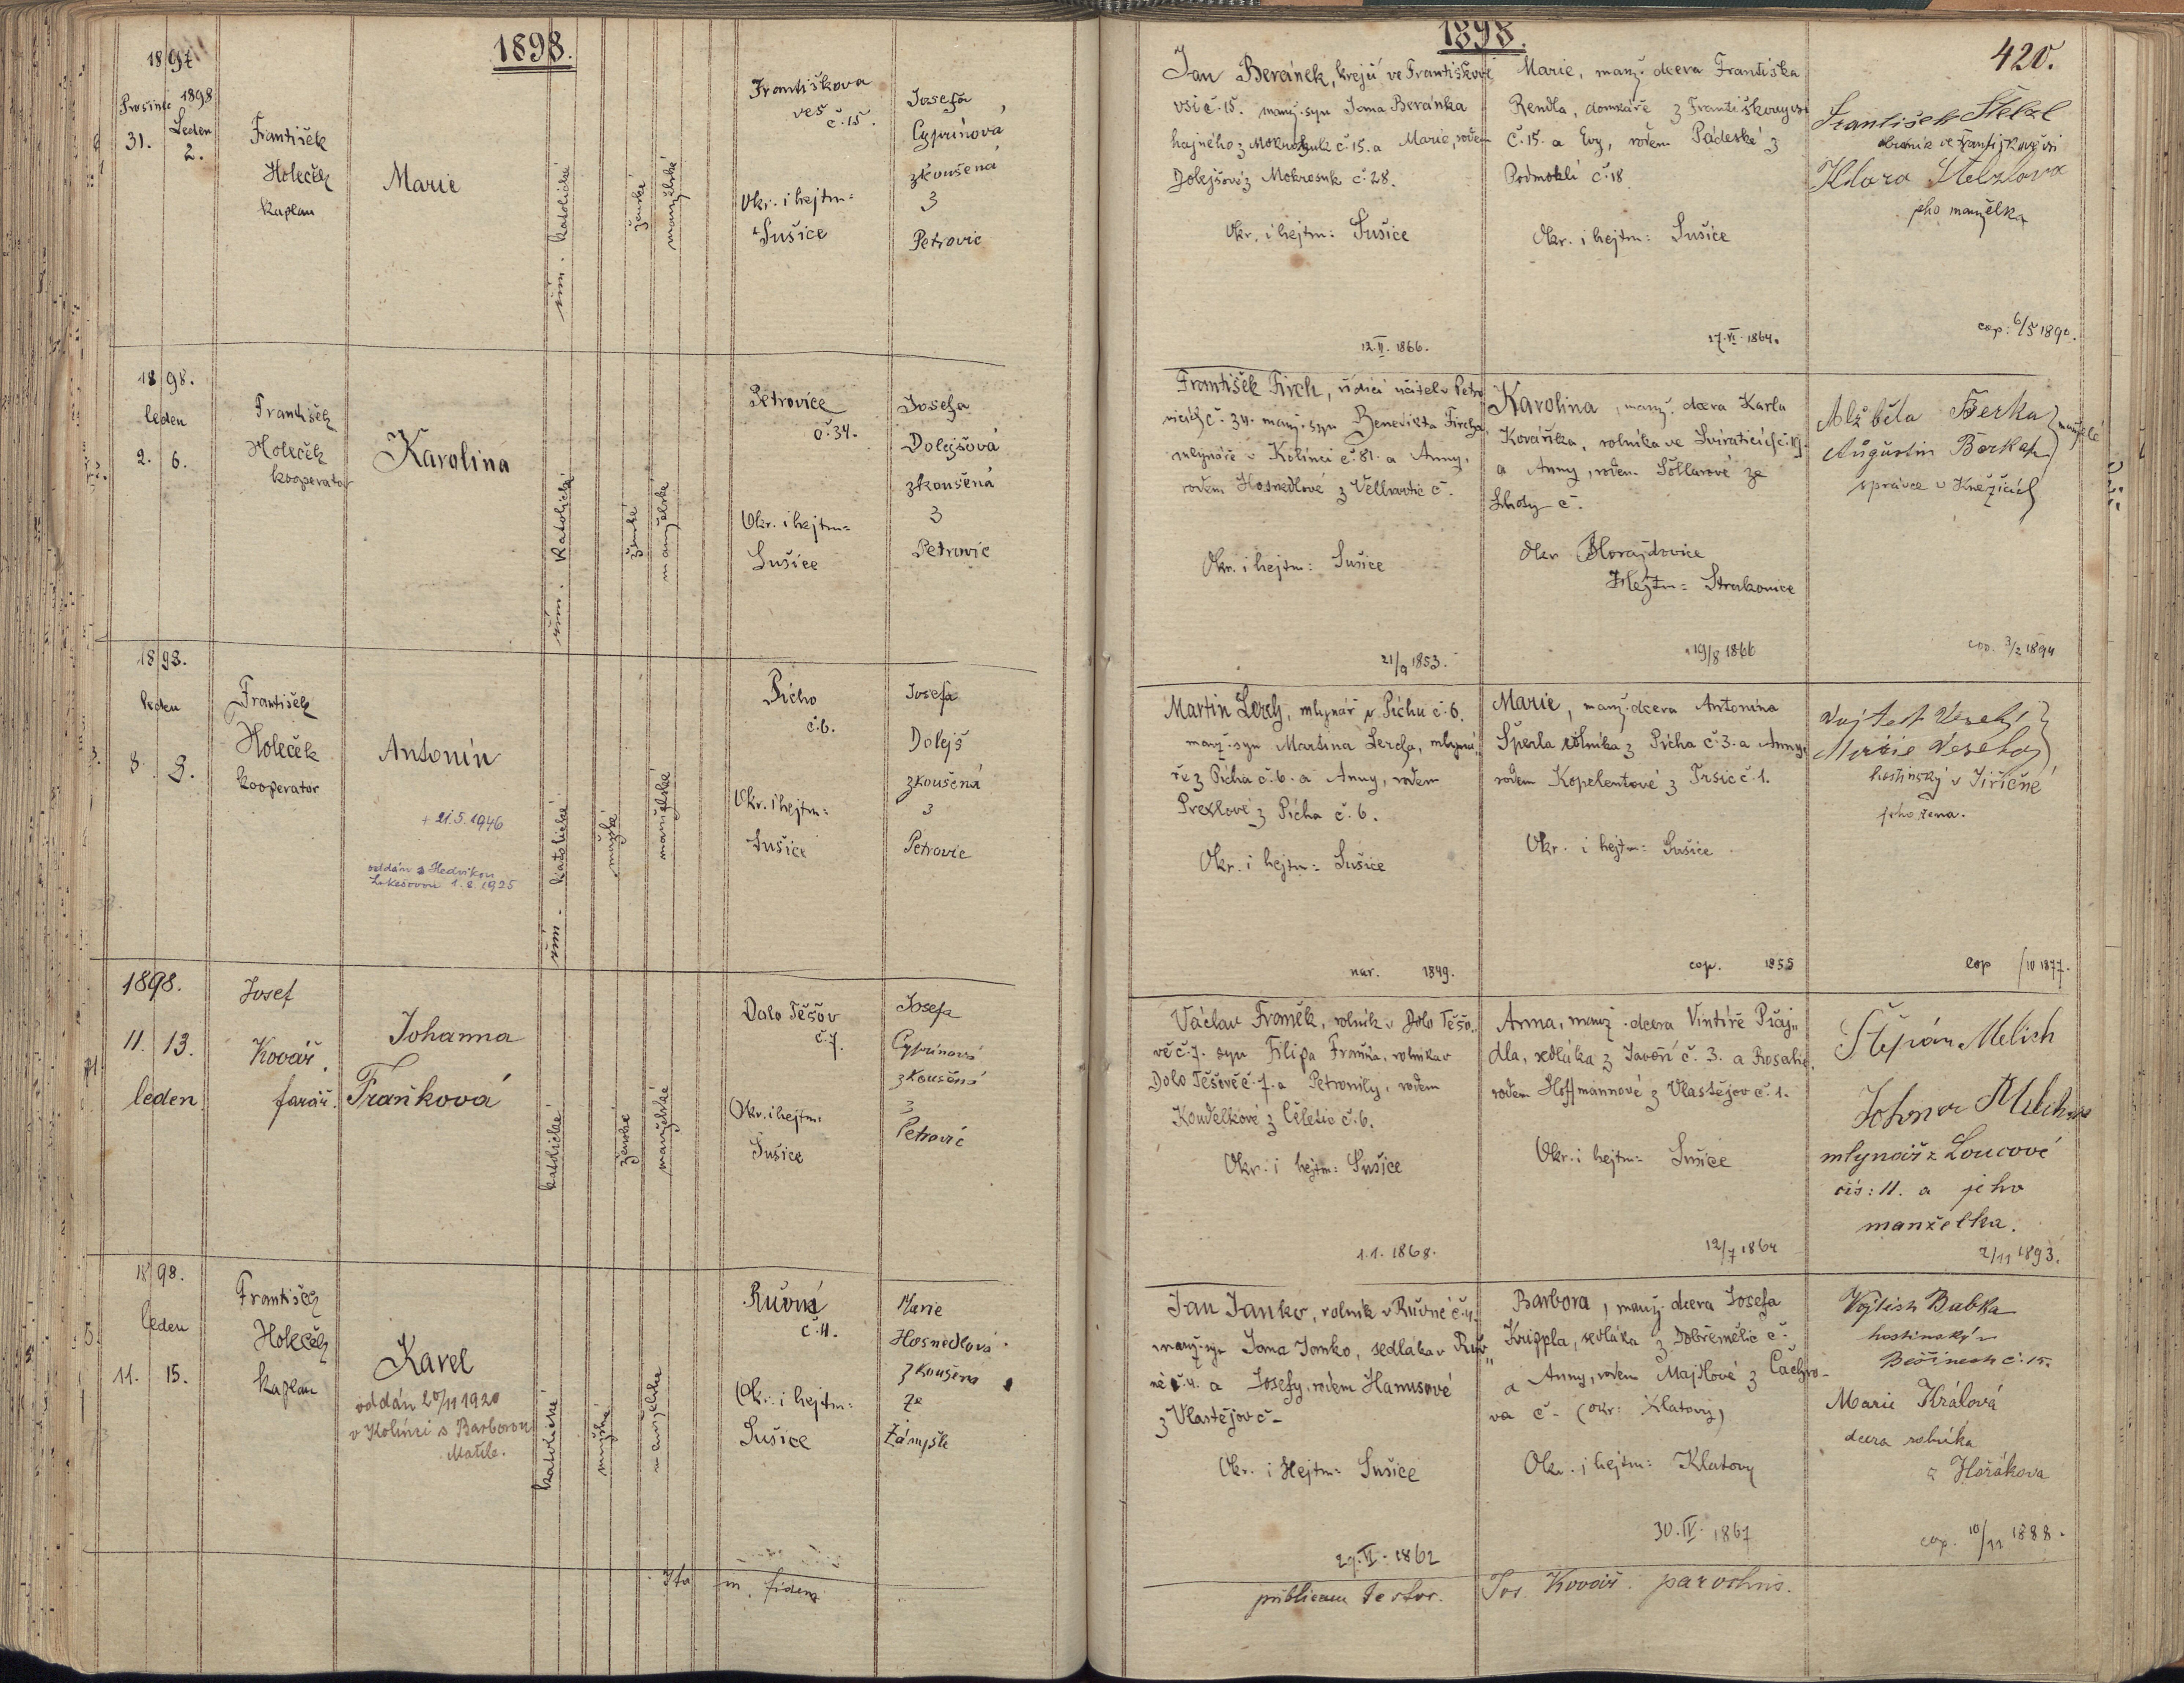 1898.
1897
Prosinec 1898
31. Leden
2.
František
Holeček
kaplan
Marie
řím. katolické
ženské
manželské
Františkova
ves
č. 15.
Okr. i hejtm:
Sušice
Josefa
Cyprinová
zkoušená
z
Petrovic
1898.
leden
2. 6.
František
Holeček
kooperator
Karolina
řím. katolické
ženské
manželské
Petrovice
č. 34.
Okr. i hejtm:
Sušice
Josefa
Dolejšová
zkoušená
z
Petrovic
1898.
leden
8. 9.
František
Holeček
kooperator
Antonín
+ 21.5.1946
oddán s Hedvikou
Lukešovou 1.8.1925
řím. katolické
mužské
manželské
Pícho
č. 6.
Okr. i hejtm:
Sušice
Josefa
Dolejš
zkoušená
z
Petrovic
1898.
11. 13.
leden
Josef
Kovář,
farář.
Johanna
Fraňková
katolické
ženské
manželské
Dolo Těšov
č. 7.
Okr. i hejtm:
Sušice
Josefa
Cyprinová
zkoušená
z
Petrovic
1898.
leden
11. 15.
František
Holeček
kaplan
Karel
oddán 20/11 1920
v Kolínci s Barborou
katolické
mužské
manželské
Ruvná
č. 4.
Okr. i hejtm:
Sušice
Marie
Hosnedlová
zkoušena
ze
Zámyšle
Ita in fidem
1898.
420.
Jan Beránek, krejčí ve Františkově
vsi č. 15. manž. syn Jana Beránka
hajného z Mokrosuk č. 15. a Marie, rodem
Dolejšové z Mokrosuk č. 28.
Okr. i hejtm: Sušice
12.II. 1866.
Marie, manž. dcera Františka
Rendla, domkáře z Františkovy vsi
č. 15. a Evy, rodem Pádecké z
Podmoklí č. 18
Okr. i hejtm: Sušice
27.VI. 1864.
František Stelzl
ve Františkově vsi
Klara Stelzlova
jeho manželka
cop: 6/5 1890.
František Firch, řídící učitel v Petro
vicích č. 34. manž. syn Benedikta Fircha,
mlynáře v Kolínci č. 81. a Anny,
rodem Hosnedlové z Velhartic č.
Okr. i hejtm: Sušice
21/9 1853.
Karolina, manž. dcera Karla
Kováříka, rolníka ve Sviraticích č. 19.
a Anny, rodem Šollarové ze
Lhoty č.
Okr Horažďovice
Hejtm: Strakonice
19/8 1866
Alžběta Berka
Augustin Berka
manželé
správce v Kněžicích
cop. 3/2 1894
Martin Lerch, mlynář v Píchu č. 6.
manž. syn Martina Lercha, mlyná„
ře z Pícha č. 6. a Anny, rodem
Prexlové z Pícha č. 6.
Okr. i hejtm: Sušice
nar. 1849.
Marie, manž. dcera Antonína
Šperla rolníka z Pícha č. 3. a Anny,
rodem Kopelentové z Trsic č. 1.
Okr. i hejtm: Sušice
cop. 1855
Vojtěch Veselý
Marie Veselá
hostinský v Jiřičné
jeho žena.
cop /10 1877.
Václav Franěk, rolník v Dolo Těšo„
vě č. 7. syn Filipa Fraňka, rolníka v
Dolo Těšově č. 7. a Petronily, rodem
Koudelkové z Čeletic č. 6.
Okr. i hejtm: Sušice
1.1. 1868.
Anna, manž. dcera Vintíře Pláj„
dla, sedláka z Javoří č. 3. a Rosalie,
rodem Hoffmannové z Vlastějov č. 1.
Okr. i hejtm: Sušice
12/7 1864
Štěpán Melich
Johana Melich
mlynář z Loucové
čís: 11. a jeho
manželka.
2/11 1893.
Jan Janko, rolník v Ruvné č. 4.
manž. syn Jana Janko, sedláka v Ruv„
né č. 4. a Josefy, rodem Hanusové
z Vlastějov č –
Okr. i Hejtm: Sušice
29.VI. 1862
Barbora, manž. dcera Josefa
Krippla, sedláka z Dobřemělic č.
a Anny, rodem Majdlové z Čachro–
va č – (okr: Klatovy)
Okr. i hejtm: Klatovy
30.IV. 1867
Vojtěch Babka
hostinský v
Bešinech č. 15.
Marie Králová
dcera rolníka
z Hořákova
cop. 10/11 1888.
publicam testor. Jos. Kovář. parochus.